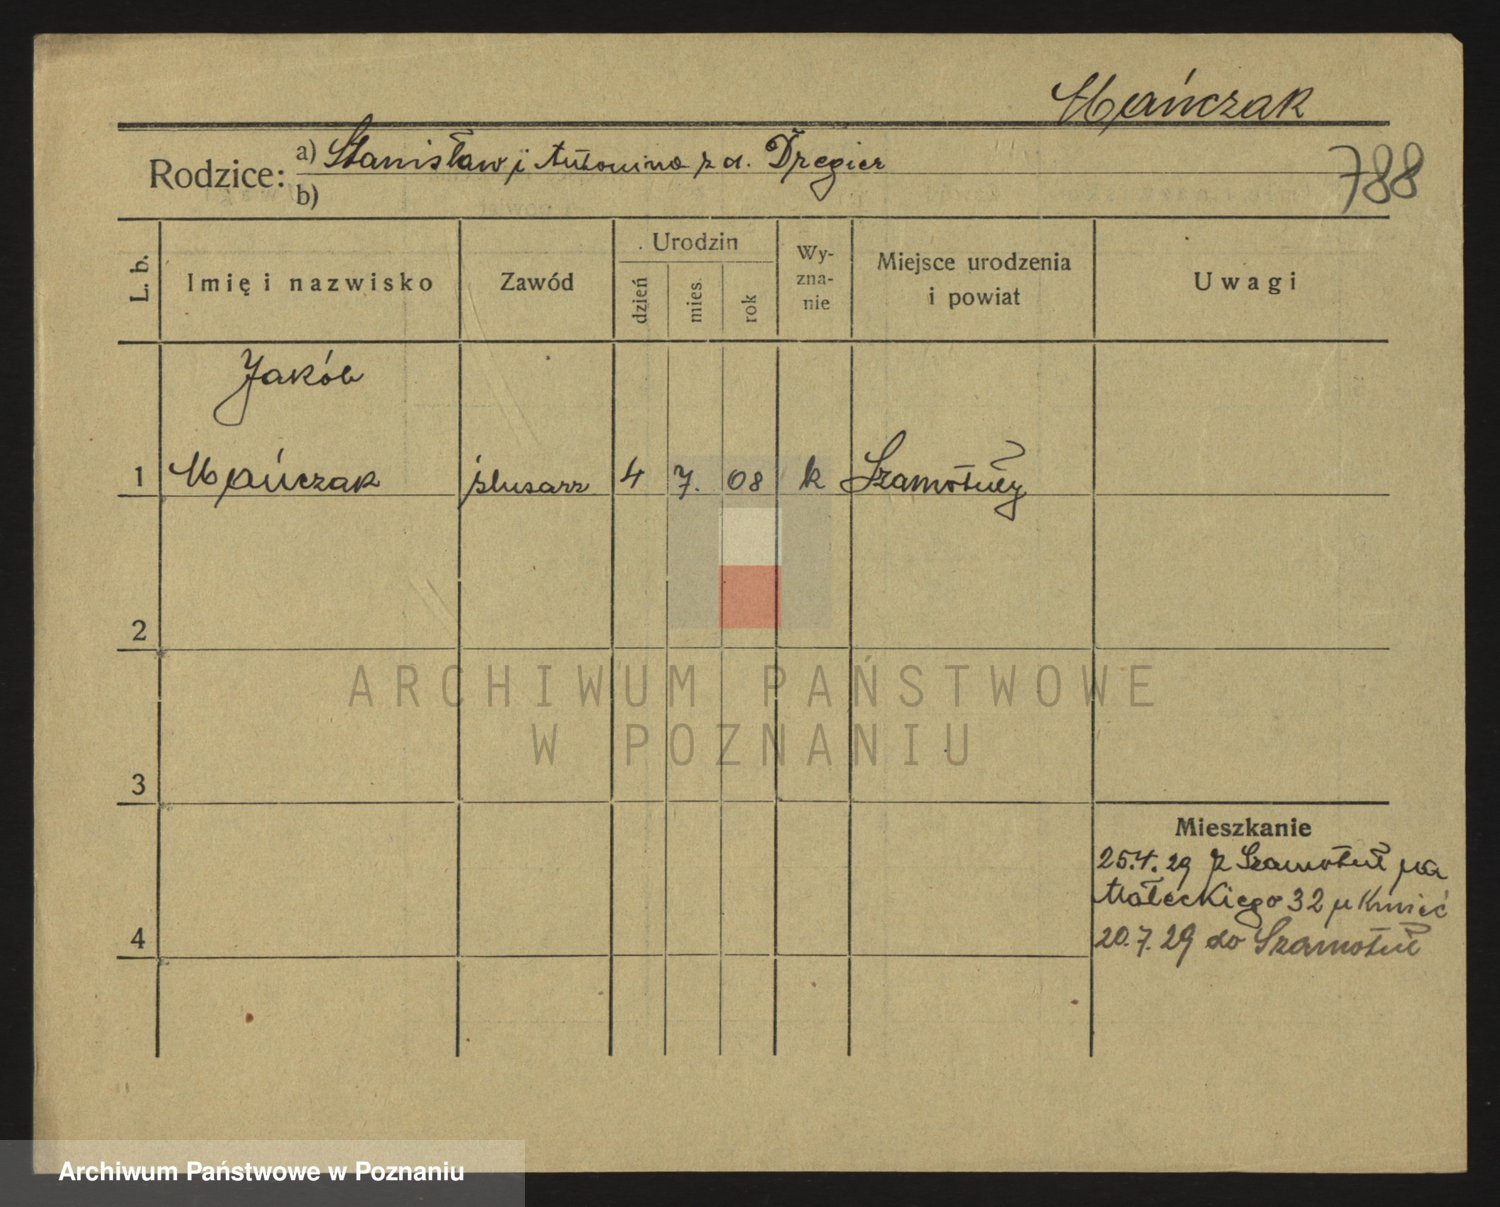 Mańczak
Rodzice: a) Stanisław i Antonina z d. Dregier
b)
788
L. b.
Imię i nazwisko
Zawód
Urodzin
dzień
mies.
rok
Wy-
zna-
nie
Miejsce urodzenia
i powiat
Uwagi
Jakób
1 Mańczak ślusarz 4 7. 08 k Szamotuły
2
3
4
Mieszkanie
25.4.29 z Szamotuł na
Małeckiego 32 u Kmieć
20.7.29 do Szamotuł
ARCHIWUM PAŃSTWOWE
W POZNANIU
Archiwum Państwowe w Poznaniu